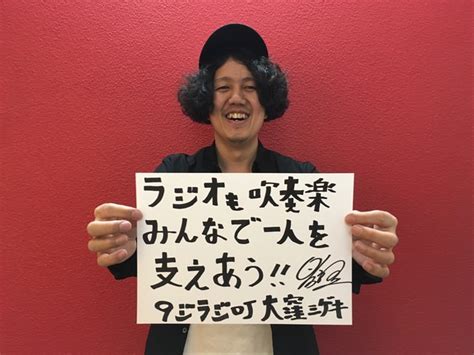 ラジオも吹奏楽
みんなで一人を
支えあう!!
9ジラジDJ 大窪シゲキ